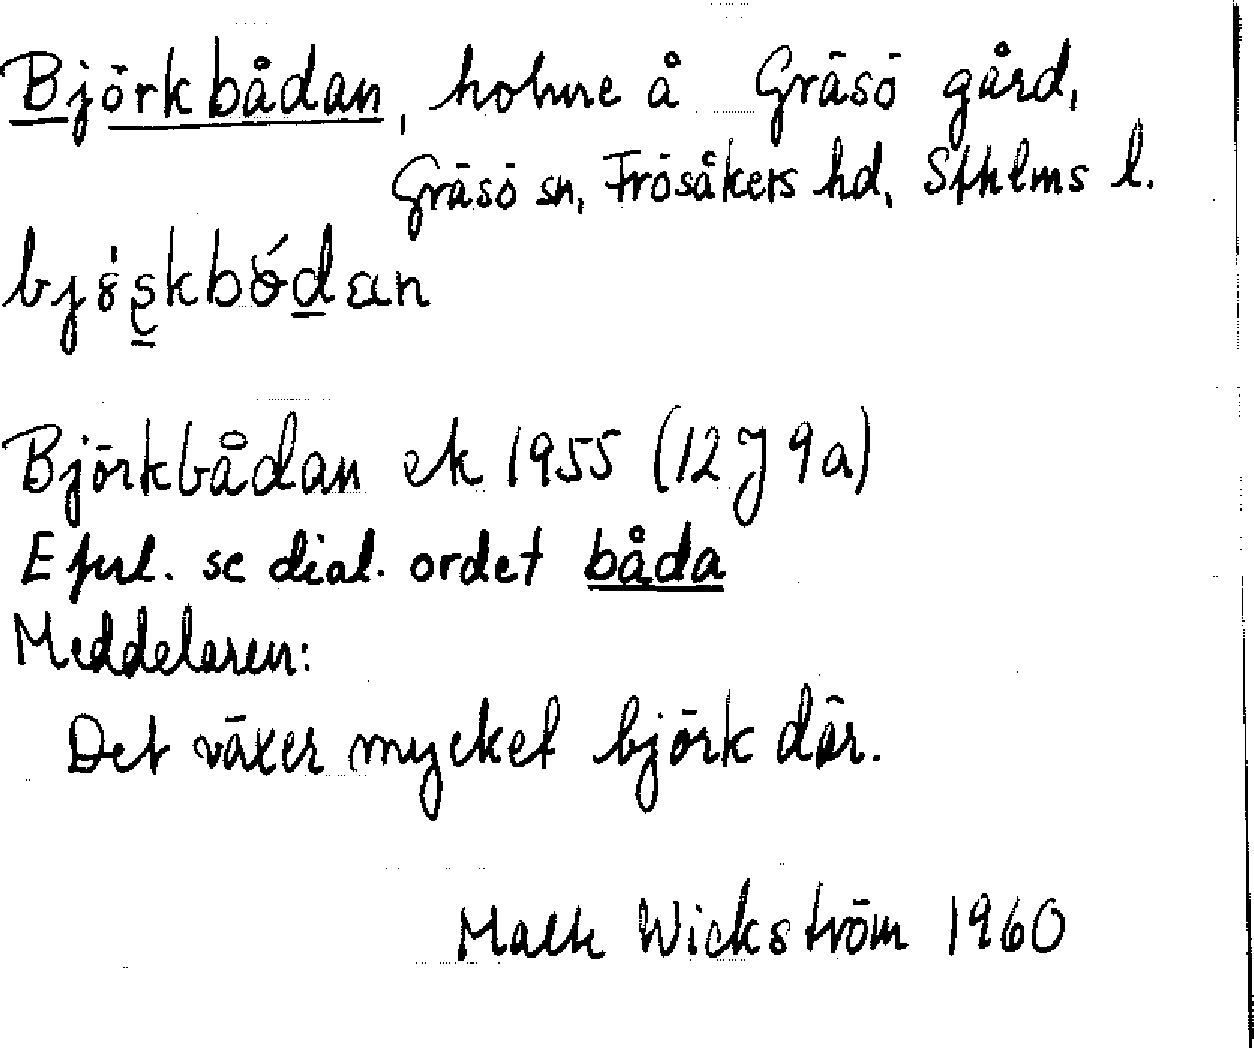 Björkbådan, holme å Gräsö gård,
Gräsö sn, Frösåkers hd, Sthlms l.
Björkbådan ek 1955 (12J 9a)
Efterl. se dial. ordet båda
Meddelaren:
Det växer mycket björk där.
Wickström 1960